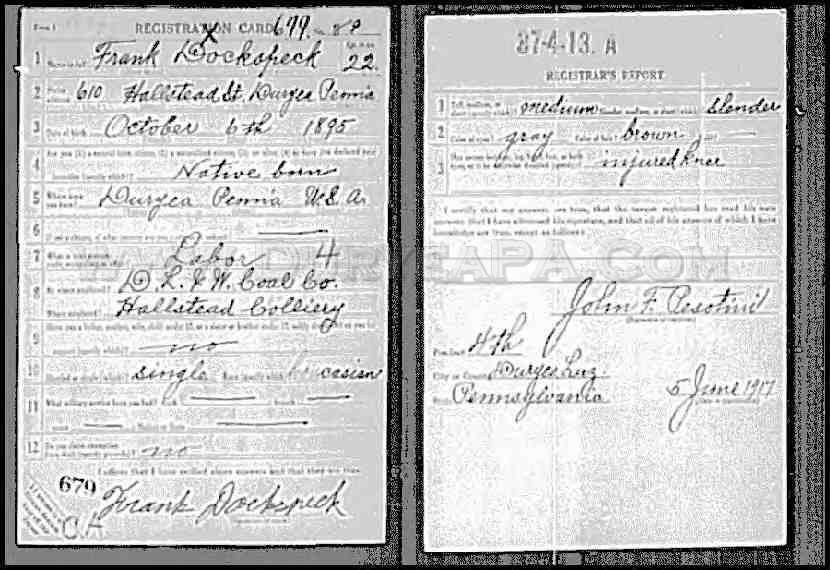 Form 1 REGISTRATION CARD 679. No. 89
X
1 Name in full Frank Dockopeck Age, in yrs. 22.
2 Home address 610 Hallstead St. Duryea Penna
3 Date of birth October 6th 1895
4 Are you (1) a natural born citizen, (2) a naturalized citizen, (3) an alien, (4) or have you declared your intention (specify which)?
Native born
5 Where were you born? Duryea Penna U.S.A.
6 If not a citizen, of what country are you a citizen or subject?
7 What is your present trade, occupation, or office? Labor 4
8 By whom employed? D. L. & W. Coal Co.
Where employed? Hallstead Colliery
9 Have you a father, mother, wife, child under 12, or a sister or brother under 12, solely dependent on you for support (specify which)?
no
10 Married or single (which)? single Race (specify which)? Caucasian
11 What military service have you had? Rank branch
years Nation or State
12 Do you claim exemption from draft (specify grounds)? no
I affirm that I have verified above answers and that they are true.
679
CA
Frank Dockopeck
WWW.DURYEAPA.COM
37-4-13. A
REGISTRAR'S REPORT
1 Tall, medium, or short (specify which)? medium Slender, medium, or stout (which)? Slender
2 Color of eyes? gray Color of hair? brown Bald?
3 Has person lost arm, leg, hand, foot, or both eyes, or is he otherwise disabled (specify)? injured knee
I certify that my answers are true, that the person registered has read his own answers, that I have witnessed his signature, and that all of his answers of which I have knowledge are true, except as follows:
John F.
Precinct 4th
City or County Duryea Luz.
State Pennsylvania 5 June 1917